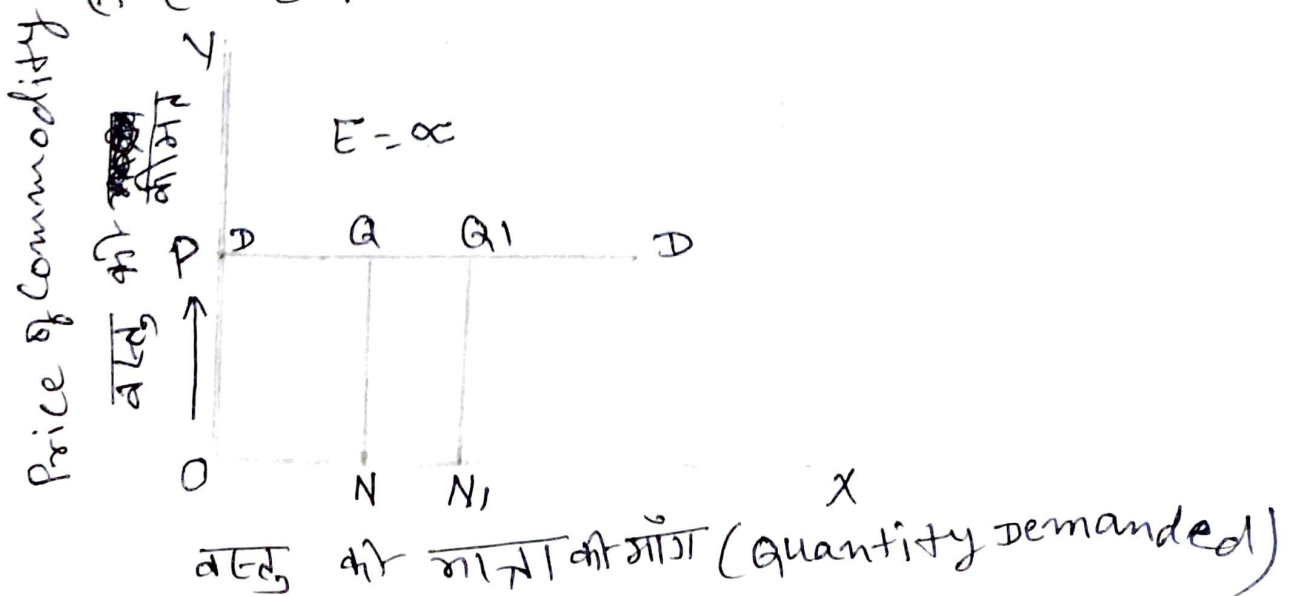 Y
Price of Commodity
वस्तु की कीमत
E = ∝
P D Q Q1 D
O N N1 X
वस्तु की मात्रा की माँग (Quantity Demanded)